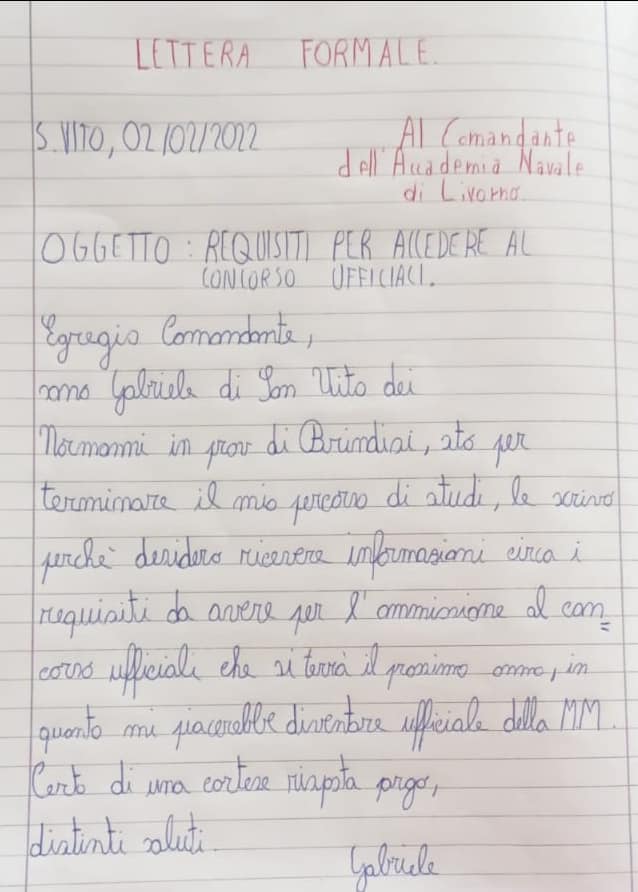 LETTERA FORMALE.
S. VITO, 02/02/2022
Al Comandante
dell'Accademia Navale
di Livorno.
OGGETTO: REQUISITI PER ACCEDERE AL
CONCORSO UFFICIALI.
Egregio Comandante,
sono Gabriele di San Vito dei
Normanni in prov di Brindisi, sto per
terminare il mio percorso di studi, le scrivo
perchè desidero ricevere informazioni circa i
requisiti da avere per l'ammissione al con=
corso ufficiali che si terrà il prossimo anno, in
quanto mi piacerebbe diventare ufficiale della MM.
Certo di una cortese risposta porgo,
distinti saluti.
Gabriele